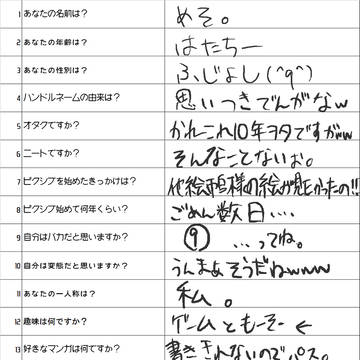 1 あなたの名前は? めそ。
2 あなたの年齢は? はたちー
3 あなたの性別は? ふじょし(^q^)
4 ハンドルネームの由来は? 思いつきでんがなw
5 オタクですか? かれこれ10年ヲタですがw
6 ニートですか? そんなことないぉ。
7 ピクシブを始めたきっかけは? 他絵師様の絵が見たかったの!!
8 ピクシブ始めて何年くらい? ごめん数日....
9 自分はバカだと思いますか? ⑨ ...ってね。
10 自分は変態だと思いますか? うんまぁそうだねwwww
11 あなたの一人称は? 私。
12 趣味は何ですか? ゲームともーそー ←
13 好きなマンガは何てすか? 書ききれないのでパス。